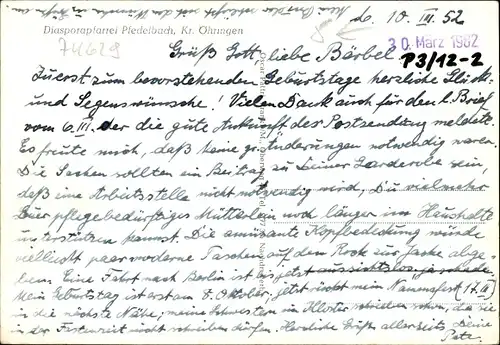 Diasporapfarrei Pfedelbach, Kr. Öhringen
d. 10. III. 52
74629
30. März 1982
P3/12-2
Grüß Gott, liebe Bärbel
Zuerst zum bevorstehenden Geburtstage herzliche Glück-
und Segenswünsche! Vielen Dank auch für den l. Brief
vom 6. III. der die gute Ankunft der Postsendung meldete.
Es freute mich, daß keine Änderungen notwendig waren.
Die Sachen sollten ein Beitrag zu Deiner Garderobe sein,
daß eine Arbeitsstelle nicht notwendig wird, Du vielmehr
Euer pflegebedürftiges Mütterlein noch länger im Haushalte
unterstützen kannst. Die amüsante Kopfbedeckung würde
vielleicht paar moderne Taschen auf den Rock zur Jacke abge-
ben. Eine Fahrt nach Berlin ist bis jetzt aussichtslos, ja schade.
Mein Geburtstag ist erst am 8. Oktober, jetzt rückt mein Namensfest (17. III)
in die nächste Nähe; meine Schwestern im Kloster schrieben schon, da sie
in der Fastenzeit nicht schreiben dürfen. Herzliche Grüße allerseits Deine
Pate.